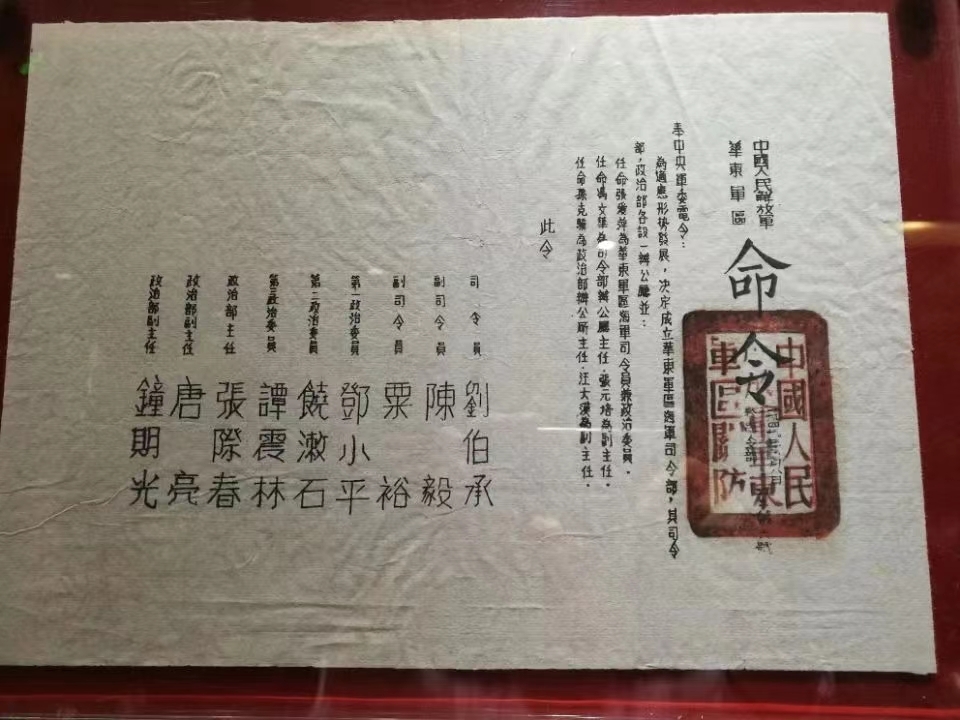 中國人民解放軍
華東軍區
命令
中國人民
華東
軍區關防
奉中央軍委電令：
為適應形勢發展，决定成立華東軍區海軍司令部，其司令
部，政治部各設一辦公廳並：
任命張愛萍為華東軍區海軍司令員兼政治委員．
任命馮文華為司令部辦公廳主任．張元培為副主任．
任命孫克驥為政治部辦公廳主任．汪大漠為副主任．
此令
司令員 劉伯承
副司令員 陳毅
副司令員 粟裕
第一政治委員 鄧小平
第二政治委員 饒漱石
第三政治委員 譚震林
政治部主任 張際春
政治部副主任 唐亮
政治部副主任 鐘期光